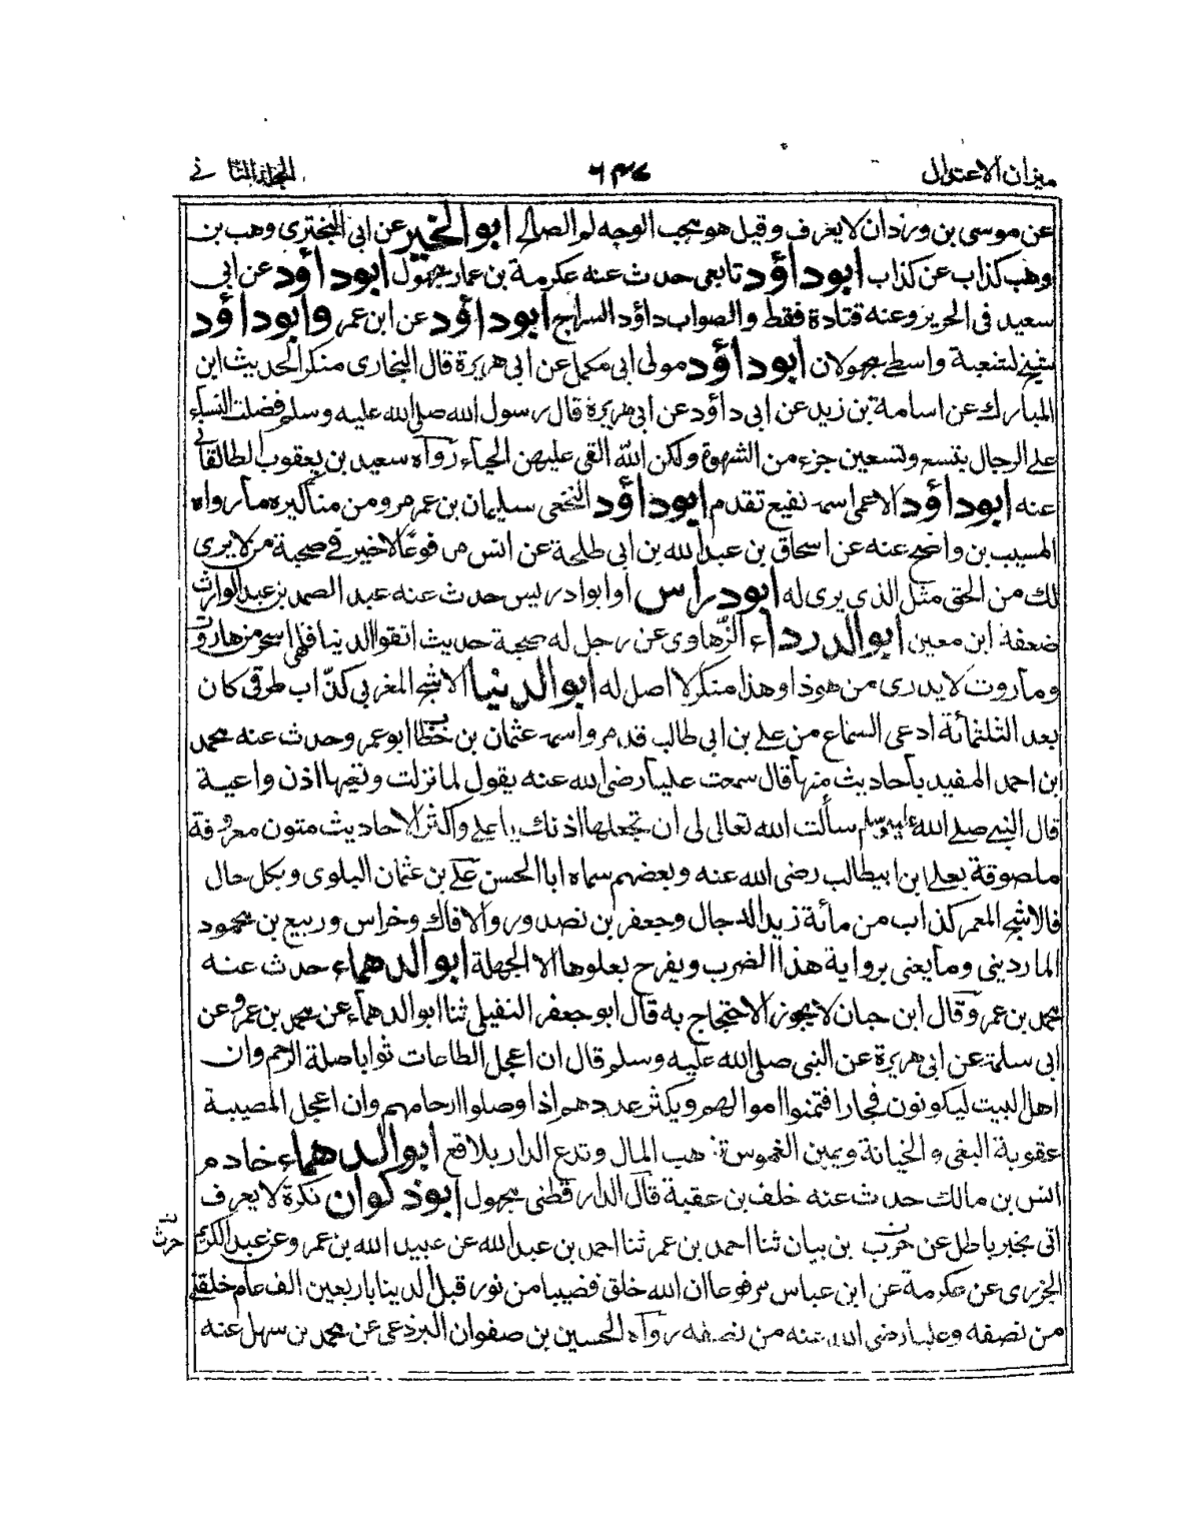 ميزان الاعتدال ٦٤٧ المجلد الثاني
عن موسى بن وردان لا يعرف وقيل هو يحب الوجه لم الصالح ابو الخير عن ابى البخترى وهب بن
وهب كذاب عن كذاب ابو داؤد تابعى حدث عنه عكرمة بن عمار مجهول ابو داؤد عن ابى
سعيد فى الحرير وعنه قتادة فقط والصواب داؤد السراج ابو داؤد عن ابن عمر وابو داؤد
شيخ لشعبة واسطى مجهولان ابو داؤد مولى ابى مكمل عن ابى هريرة قال البخارى منكر الحديث ابن
المبارك عن اسامة بن زيد عن ابى داؤد عن ابى هريرة قال رسول الله صلى الله عليه وسلم فضلت النساء
على الرجال بتسع وتسعين جزء من الشهوة ولكن الله القى عليهن الحياء رواه سعيد بن يعقوب الطالقانى
عنه ابو داؤد الاعمى اسمه نفيع تقدم ابو داؤد النخعى سليمان بن عمرو ومن مناكيره ما رواه
المسيب بن واضح عنه عن اسحاق بن عبد الله بن ابى طلحة عن انس مرفوعا لاخير فى صحبة من لا يرى
لك من الحق مثل الذى يرى له ابو دراس او ابو ادريس حدث عنه عبد الصمد بن عبد الوارث
ضعفه ابن معين ابو الدرداء الرهاوى عن رجل له صحبة حديث اتقوا الدنيا فلهى اسحر من هاروت
وماروت لا يدرى من هو ذا وهذا منكر لا اصل له ابو الدنيا الاشج المغربى كذاب طرقى كان
بعد الثلثمائة ادعى السماع من على بن ابى طالب قدم واسمه عثمان بن خطاب ابو عمر وحدث عنه محمد
ابن احمد المفيد باحاديث منها قال سمعت عليا رضى الله عنه يقول لما نزلت وتعيها اذن واعية
قال النبى صلى الله عليه وسلم سألت الله تعالى لى ان تجعلها اذنك يا على واكثر الاحاديث متون معروفة
ملصوقة بعلى ابن ابيطالب رضى الله عنه وبعضهم سماه ابا الحسن على بن عثمان البلوى وبكل حال
فالاشج المعمر كذاب من مائة زيد الدجال وجعفر بن نصدور والافاك وخراس وربيع بن محمود
الماردينى وما يعنى برواية هذا الضرب ويفرح بعلوها الا الجهلة ابو الدهماء حدث عنه
محمد بن عمر وقال ابن حبان لا يجوز الاحتجاج به قال ابو جعفر النفيلى ثنا ابو الدهماء عن محمد بن عمرو عن
ابى سلمة عن ابى هريرة عن النبى صلى الله عليه وسلم قال ان اعجل الطاعات ثوابا صلة الرحم وان
اهل البيت ليكونون فجارا فتمنوا اموالهم ويكثر عددهم اذا وصلوا ارحامهم وان اعجل المصيبة
عقوبة البغى والخيانة ويمين الغموس تذهب المال وتدع الدار بلاقع ابو الدهماء خادم
انس بن مالك حدث عنه خلف بن عقبة قال الدارقطنى مجهول ابو ذكوان نكرة لا يعرف
اتى بخبر باطل عن حرب بن بيان ثنا احمد بن عمر ثنا احمد بن عبد الله عن عبيد الله بن عمر وعن عبد الكريم
الجزرى عن عكرمة عن ابن عباس مرفوعا ان الله خلق قضيبا من نور قبل الدينا باربعين الف عام خلقنى
من نصفه وعليا رضى الله عنه من نصفه رواه الحسين بن صفوان البرذعى عن محمد بن سهل عنه